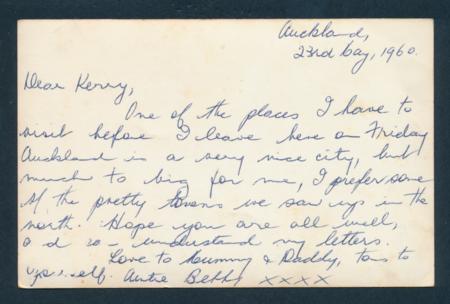 Auckland,
23rd May, 1960.
Dear Kerry,
One of the places I have to
visit before I leave here on Friday
Auckland is a very nice city, but
much to big for me, I prefer some
of the pretty towns we saw up in the
north. Hope you are all well,
understand my letters.
Love to Mummy & Daddy, to
Auntie Betty XXXX